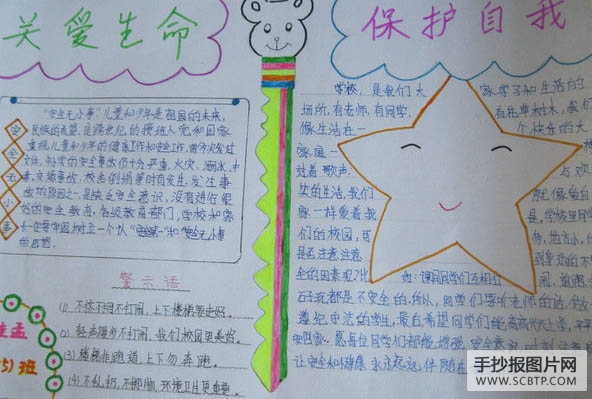 关爱生命
保护自我
安全无小事
"安全无小事"儿童和少年是祖国的未来,
民族的希望,是跨世纪的接班人党和国家
重视儿童和少年的健康工作和安全工作,
文件,但
火灾、溺水、中
毒、交通事故、校舍倒塌等时有发生,发生事
故的原因之一,是缺乏安全意识,没有进行
的安全教育,各级教育部门,学校和家
长一定要牢固树立一个"安全第一"和"安全无小事
的思想。
警示语
(1) 不挤不推不打闹,上下楼梯要走好。
(2) 轻声慢步不打闹,我们校园更美好。
(3) 楼梯非跑道,上下勿奔跑。
(4) 不乱扔,不
环境卫生更重要。
孟
5)班
学校,是我们大
家学习和生活的
场所,有老师,有同学,
有花草树木,我们
像生活在一
个快乐的大
家庭一
过着歌声
与欢
笑的生活,我们
就像爱自
家一样爱着我
是,学校里同学
们的校园,可
多,地方小,
是若注意注意
全的因素
如:课间同学们互相打
闹,
都是不安全的,所以,同学们要听老师的话,做
遵纪守法的学生,最后,希望同学们
愿每位同学们都能增强安全意识,
让安全和健康永永远远,伴随在
手抄报图片网
WWW.SCBTP.COM